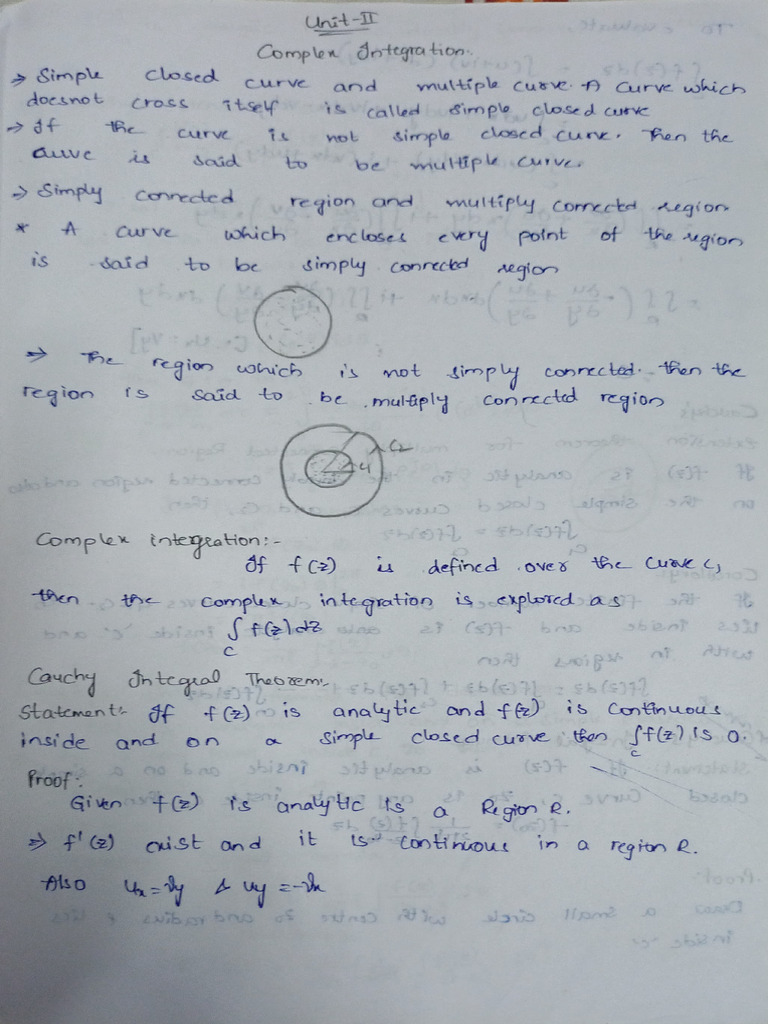 Unit-II
Complex Integration.
→ Simple closed curve and multiple curve. A curve which
doesnot cross itself is called simple closed curve
→ If the curve is not simple closed curve. Then the
curve is said to be multiple curve.
→ Simply connected region and multiply connected region
* A curve which encloses every point of the region
is said to be simply connected region
⇒ The region which is not simply connected. then the
region is said to be multiply connected region
C2
C1
Complex integration:-
If f(z) is defined over the curve C,
then the complex integration is explored as
∫ f(z) dz
C
Cauchy Integral Theorem:-
Statement:- If f(z) is analytic and f(z) is continuous
inside and on a simple closed curve then ∫f(z) is 0.
C
Proof:
Given f(z) is analytic is a Region R.
⇒ f'(z) exist and it is continuous in a region R.
Also Ux = Vy & Uy = -Vx